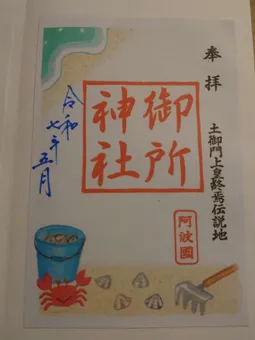 奉拝
土御門上皇終焉伝説地
御所
神社
阿波國
令和
七年五月